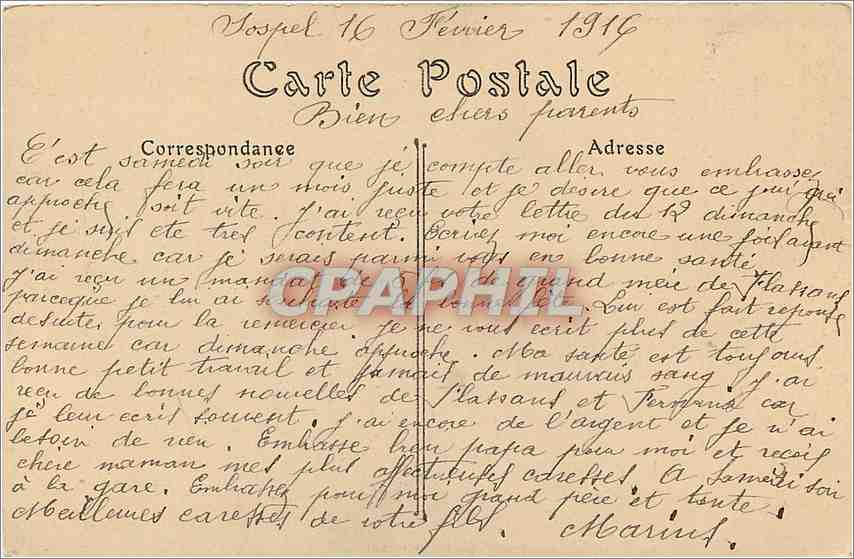 Sospel 16 Février 1916
Carte Postale
Bien chers parents
Correspondance
Adresse
C'est samedi soir que je compte aller vous embrasser
car cela fera un mois juste et je désire que ce jour qui
approche soit vite. J'ai reçu votre lettre du 12 dimanche
et je suis été très content. Ecrivez moi encore une fois avant
dimanche car je serais parmi vous en bonne santé
J'ai reçu un mandat de de grand mère de Flassans
parceque je lui ai souhaité la bonne fête. Lui est fait reponse
desuite pour la remercier. je ne vous ecrit plus de cette
semaine car dimanche approche. Ma santé est toujours
bonne petit travail et jamais de mauvais sang J'ai
reçu de bonnes nouvelles de Flassans et car
je leur ecris souvent. J'ai encore de l'argent et je n'ai
besoin de rien. Embrasse bien papa pour moi et reçois
chère maman mes plus affectueuses caresses. A samedi soir
à la gare. Embrassez pour moi grand père et tante.
Meilleures caresses de votre fils. Marius.
CPAPHIL